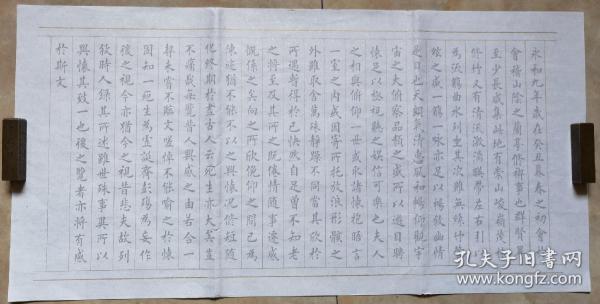 永和九年歲在癸丑暮春之初會於
會稽山陰之蘭亭修禊事也群賢畢
至少長咸集此地有崇山峻嶺茂林
修竹又有清流激湍映帶左右引以
為流觴曲水列坐其次雖無絲竹管
絃之盛一觴一詠亦足以暢敘幽情
是日也天朗氣清惠風和暢仰觀宇
宙之大俯察品類之盛所以遊目騁
懷足以極視聽之娛信可樂也夫人
之相與俯仰一世或取諸懷抱晤言
一室之內或因寄所托放浪形骸之
外雖取舍萬殊靜躁不同當其欣於
所遇暫得於己快然自足曾不知老
之將至及其所之既倦情隨事遷感
慨係之矣向之所欣俛仰之間已為
陳迹猶不能不以之興懷況修短隨
化終期於盡古人云死生亦大矣豈
不痛哉每覽昔人興感之由若合一
契未嘗不臨文嗟悼不能喻之於懷
固知一死生為虛誕齊彭殤為妄作
後之視今亦猶今之視昔悲夫故列
敘時人錄其所述雖世殊事異所以
興懷其致一也後之覽者亦將有感
於斯文
孔夫子旧书网
www.kongfz.com